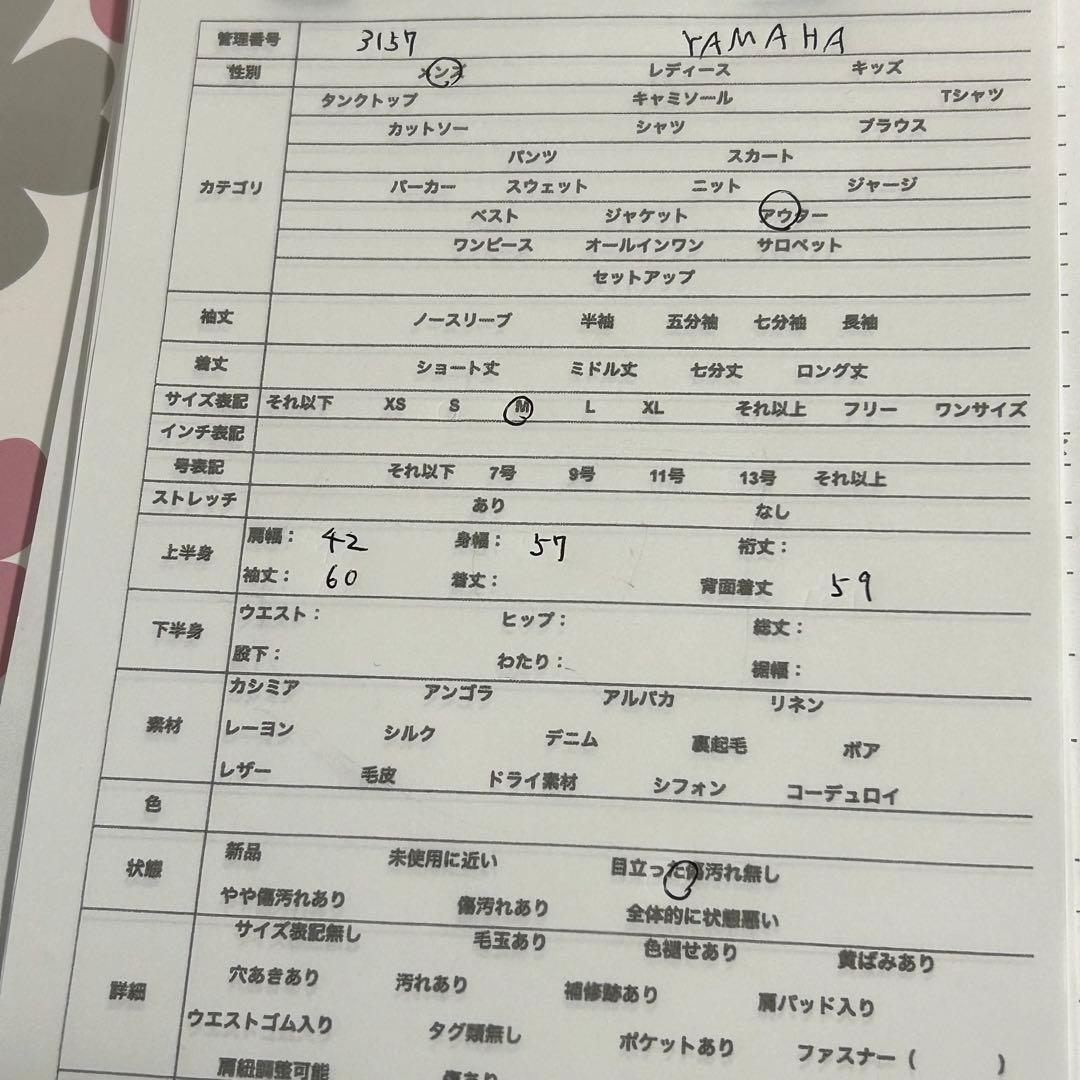 管理番号 3157 YAMAHA
性別 メンズ レディース キッズ
タンクトップ キャミソール Tシャツ
カットソー シャツ ブラウス
パンツ スカート
カテゴリ パーカー スウェット ニット ジャージ
ベスト ジャケット アウター
ワンピース オールインワン サロペット
セットアップ
袖丈 ノースリーブ 半袖 五分袖 七分袖 長袖
着丈 ショート丈 ミドル丈 七分丈 ロング丈
サイズ表記 それ以下 XS S M L XL それ以上 フリー ワンサイズ
インチ表記
号表記 それ以下 7号 9号 11号 13号 それ以上
ストレッチ あり なし
上半身 肩幅： 42 身幅： 57 裄丈：
袖丈： 60 着丈： 背面着丈 59
下半身 ウエスト： ヒップ： 総丈：
股下： わたり： 裾幅：
素材 カシミア アンゴラ アルパカ リネン
レーヨン シルク デニム 裏起毛 ボア
レザー 毛皮 ドライ素材 シフォン コーデュロイ
色
状態 新品 未使用に近い 目立った傷汚れ無し
やや傷汚れあり 傷汚れあり 全体的に状態悪い
詳細 サイズ表記無し 毛玉あり 色褪せあり 黄ばみあり
穴あきあり 汚れあり 補修跡あり 肩パッド入り
ウエストゴム入り タグ類無し ポケットあり ファスナー（ ）
肩紐調整可能 傷あり